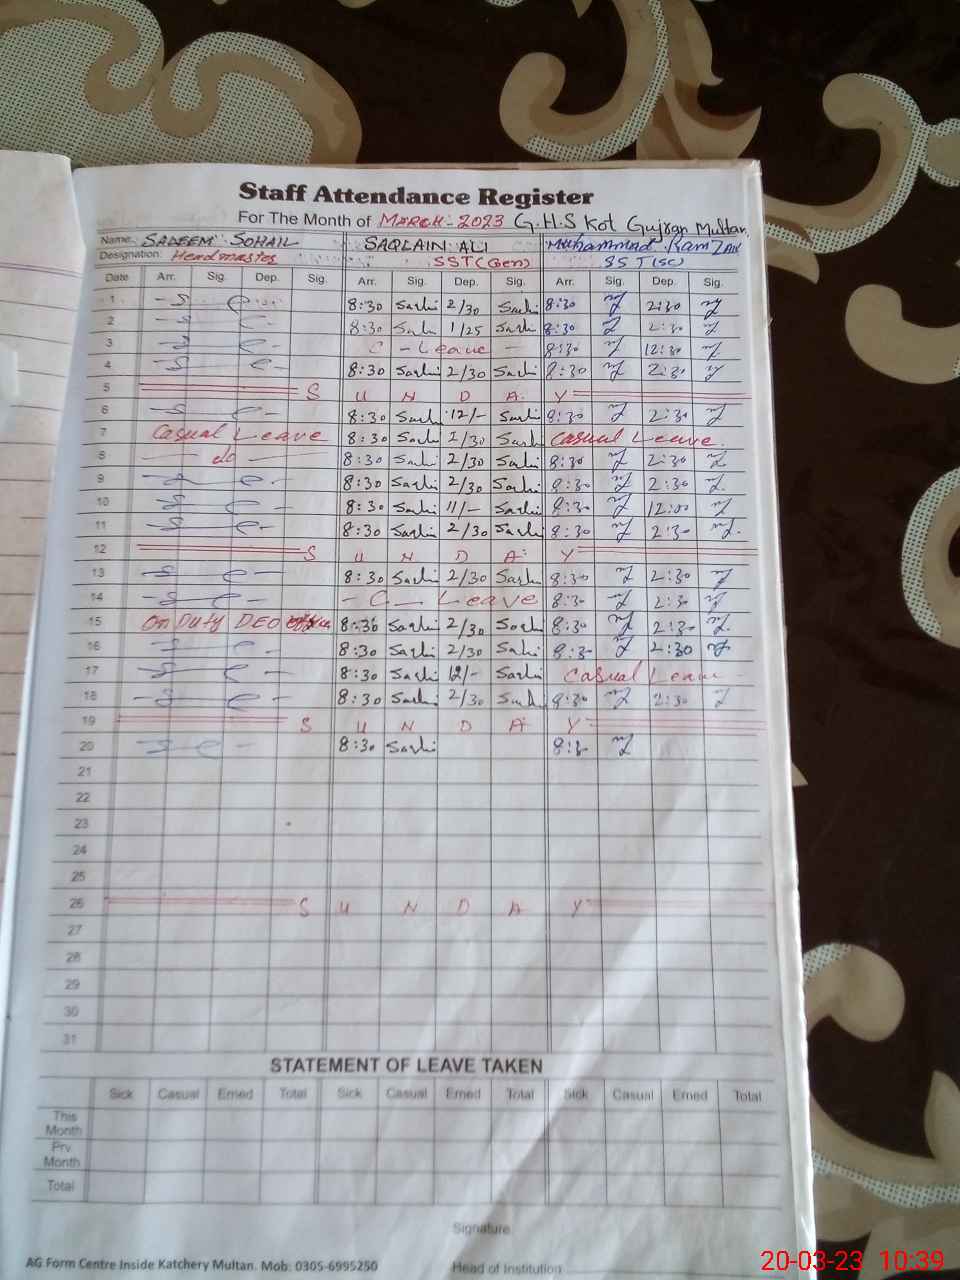 Staff Attendance Register
For The Month of MARCH-2023 G.H.S Kot Gujran Multan
Name: SADEEM SOHAIL SAQLAIN ALI Muhammad Ramzan
Designation: Headmaster SST(Gen) SST(SC)
Date Arr. Sig. Dep. Sig. Arr. Sig. Dep. Sig. Arr. Sig. Dep. Sig.
1 8:30 2/30 8:30 2:30
2 8:30 1/25 8:30 2:30
3 C - Leave 8:30 12:30
4 8:30 2/30 8:30 2:30
5 S U N D A Y
6 8:30 12/- 8:30 2:30
7 Casual Leave 8:30 2/30 Casual Leave
8 do 8:30 2/30 8:30 2:30
9 8:30 2/30 8:30 2:30
10 8:30 11/- 8:30 12:00
11 8:30 2/30 8:30 2:30
12 S U N D A Y
13 8:30 2/30 8:30 2:30
14 - C - Leave 8:30 2:30
15 On Duty DEO office 8:30 2/30 8:30 2:30
16 8:30 2/30 8:30 2:30
17 8:30 12/- Casual Leave
18 8:30 2/30 8:30 2:30
19 S U N D A Y
20 8:30 8:30
21
22
23
24
25
26 S U N D A Y
27
28
29
30
31
STATEMENT OF LEAVE TAKEN
Sick Casual Erned Total Sick Casual Erned Total Sick Casual Erned Total
This Month
Prv Month
Total
Signature
AG Form Centre Inside Katchery Multan. Mob: 0305-6995250 Head of Institution
20-03-23 10:39